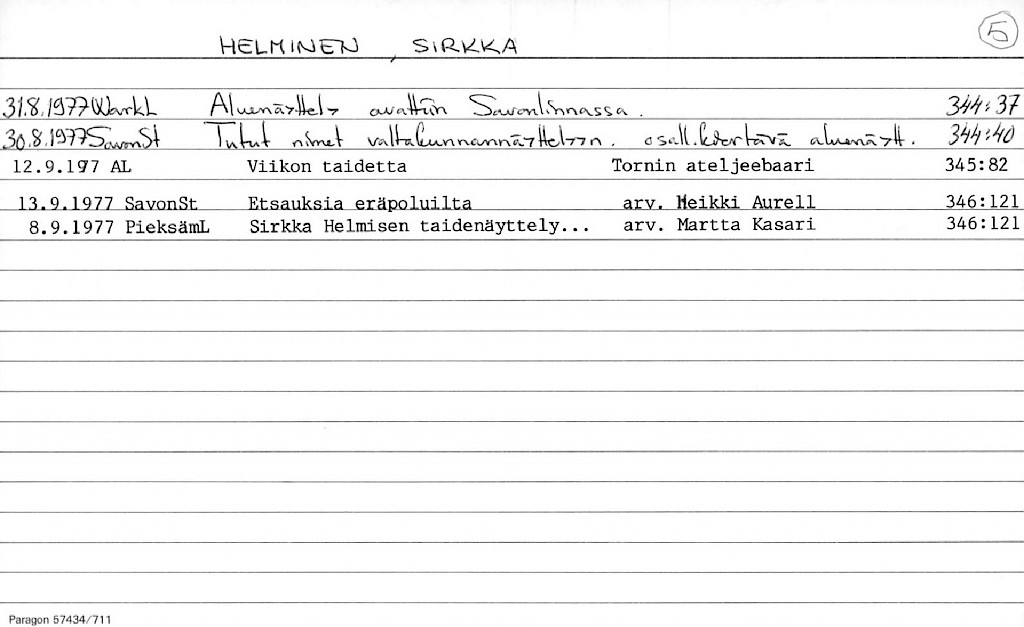 5
HELMINEN, SIRKKA
31.8.1977 WarkL Aluenäyttely avattiin Savonlinnassa. 344:37
30.8.1977 SavonSt Tutut nimet valtakunnannäyttelyyn. osall. kiertävä aluenäytt. 344:40
12.9.197 AL Viikon taidetta Tornin ateljeebaari 345:82
13.9.1977 SavonSt Etsauksia eräpoluilta arv. Heikki Aurell 346:121
8.9.1977 PieksämL Sirkka Helmisen taidenäyttely... arv. Martta Kasari 346:121
Paragon 57434/711